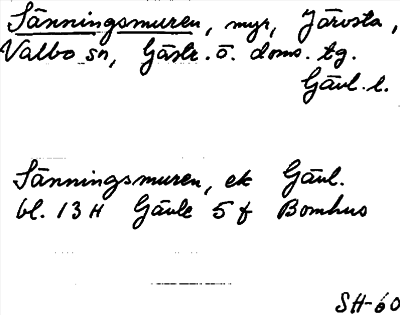 Sänningsmuren, myr, Järvsta,
Valbo sn, Gästr. ö. doms. tg.
Gävl. l.
Sänningsmuren, ek Gävl.
bl. 13 H Gävle 5 f Bomhus
SH-60